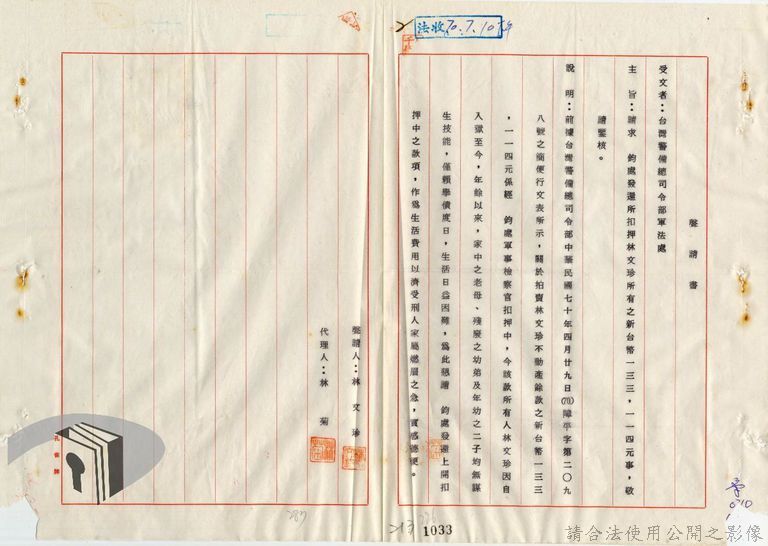 聲請書
受文者：台灣警備總司令部軍法處
主　旨：請求　鈞處發還所扣押林文珍所有之新台幣一三三，一一四元事，敬
請鑒核。
說　明：前據台灣警備總司令部中華民國七十年四月廿九日(70)障平字第二〇九
八號之簡便行文表所示，關於拍賣林文珍不動產餘款之新台幣一三三
，一一四元係經　鈞處軍事檢察官扣押中，今該款所有人林文珍因自
入獄至今，年餘以來，家中之老母、殘廢之幼弟及年幼之二子均無謀
生技能，僅賴舉債度日，生活日益困難，為此懇請　鈞處發還上開扣
押中之款項，作為生活費用以濟受刑人家屬燃眉之急，實感德便。
聲請人：林文珍
代理人：林菊
法收70.7.10
1033
213
孔雀牌
請合法使用公開之影像